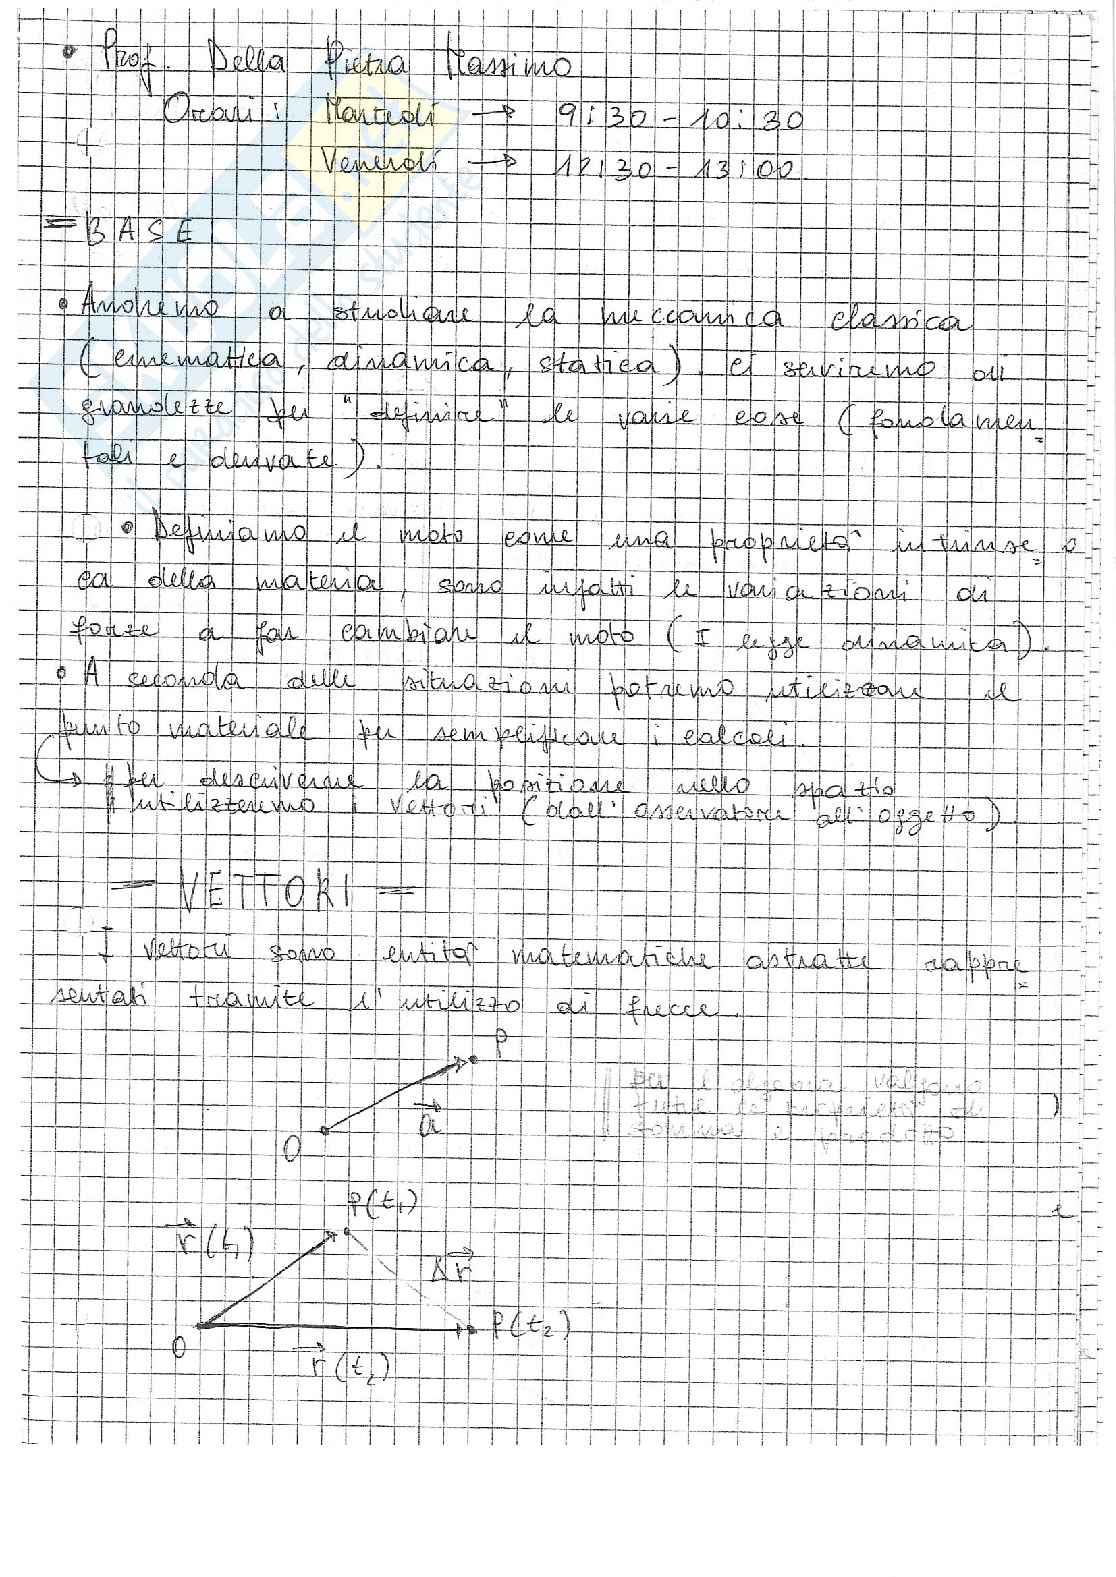 • Prof. Della Pietra Massimo
Orari: Martedì → 9:30 - 10:30
Venerdì → 12:30 - 13:00
= BASE
• Andremo a studiare la meccanica classica
(cinematica, dinamica, statica). Ci serviremo di
grandezze per "definire" le varie cose (fondamen=
tali e derivate).
• Definiamo il moto come una proprietà intrinse=
ca della materia, sono infatti le variazioni di
forze a far cambiare il moto (I legge dinamica).
• A seconda delle situazioni potremo utilizzare il
punto materiale per semplificare i calcoli.
→ per descriverne la posizione nello spazio
utilizzeremo i vettori (dall'osservatore all'oggetto)
= VETTORI =
I vettori sono entità matematiche astratte rappre=
sentati tramite l'utilizzo di frecce.
P
a
O
per i valgono
tutte le proprietà di
P(t₁)
r(t₁)
Δr
P(t₂)
O
r(t₂)